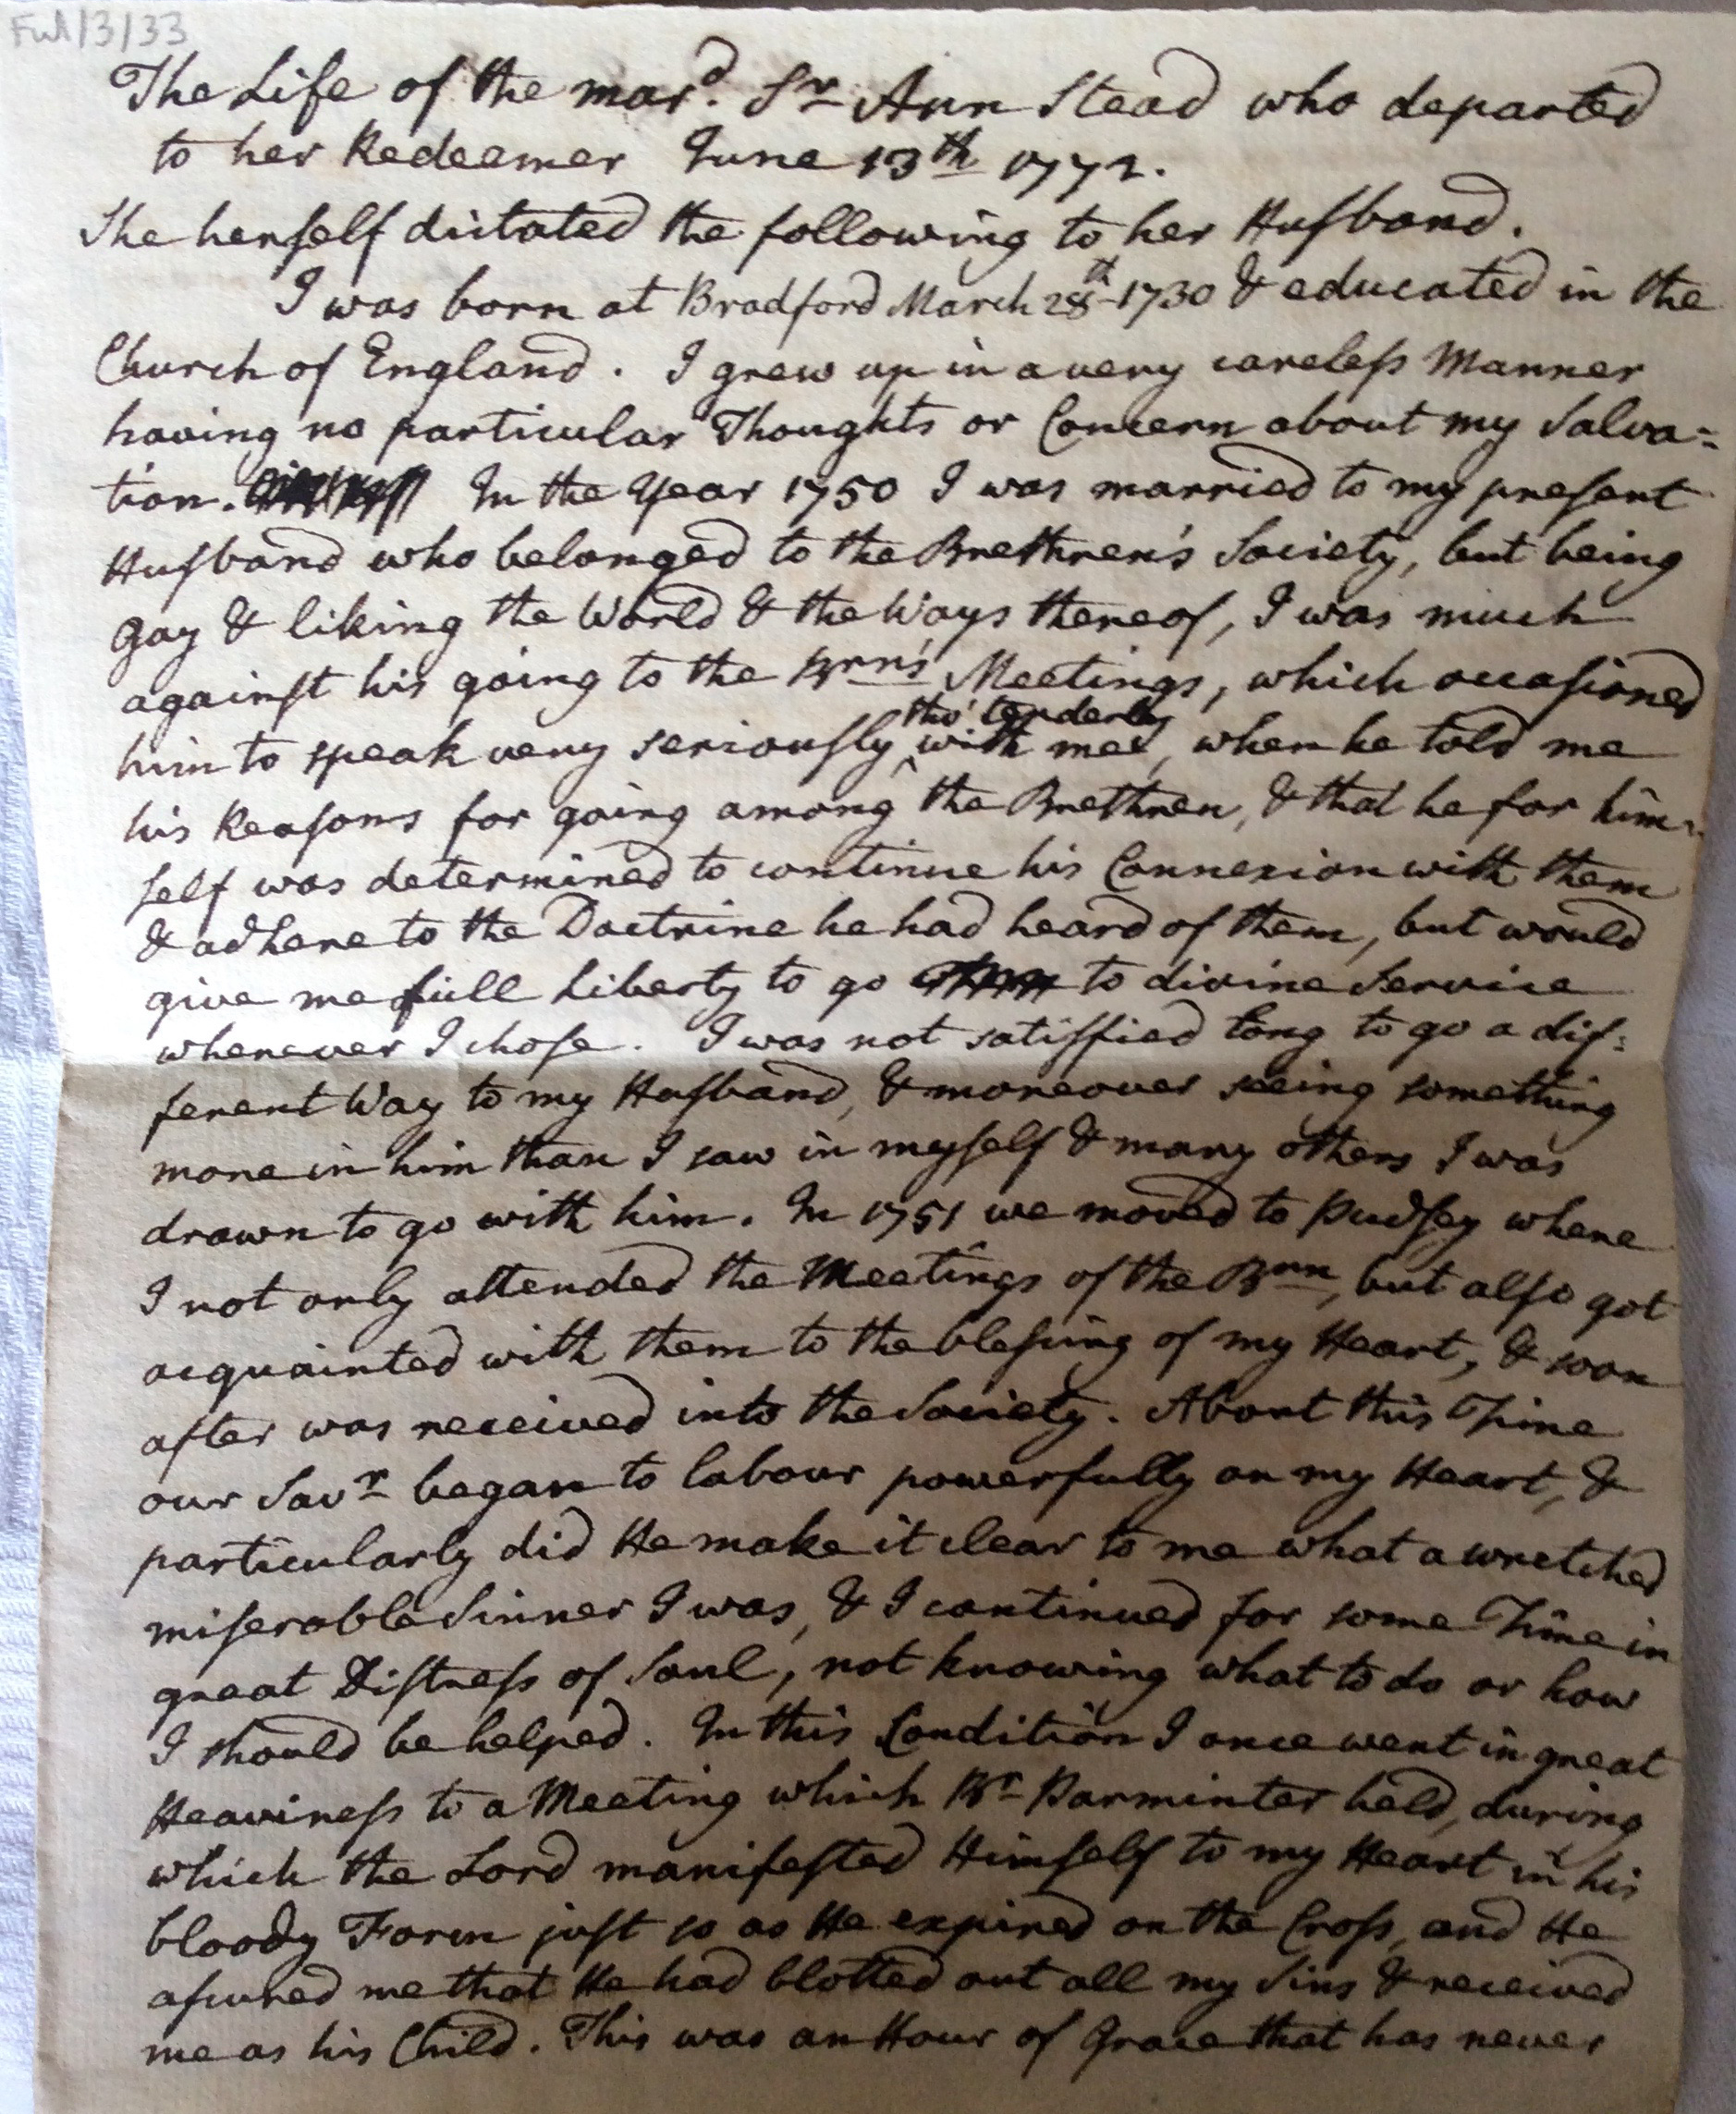 Ful/3/33
The Life of the mard. Sr Ann Stead who departed
to her Redeemer June 13th 1772.
She herself dictated the following to her Husband.
I was born at Bradford March 28th 1730 & educated in the
Church of England. I grew up in a very careless Manner
having no particular Thoughts or Concern about my Salva=
tion. In the Year 1750 I was married to my present
Husband who belonged to the Brethren's Society, but being
gay & liking the World & the Ways thereof, I was much
against his going to the Brn's Meetings, which occasioned
him to speak very seriously tho' tenderly with me, when he told me
his Reasons for going among the Brethren, & that he for him=
self was determined to continue his Connexion with them
& adhere to the Doctrine he had heard of them, but would
give me full Liberty to go to divine Service
whenever I chose. I was not satisfied long to go a dif=
ferent Way to my Husband, & moreover seeing something
more in him than I saw in myself & many others I was
drawn to go with him. In 1751 we moved to Pudsey where
I not only attended the Meetings of the Brn, but also got
acquainted with them to the blessing of my Heart, & soon
after was received into the Society. About this Time
our Savr began to labour powerfully on my Heart, &
particularly did He make it clear to me what a wretched
miserable Sinner I was, & I continued for some Time in
great Distress of Soul, not knowing what to do or how
I should be helped. In this Condition I once went in great
Heaviness to a Meeting which Br Parminter held, during
which the Lord manifested Himself to my Heart in his
bloody Form just so as He expired on the Cross, and He
assured me that He had blotted out all my Sins & received
me as his Child. This was an Hour of Grace that has never